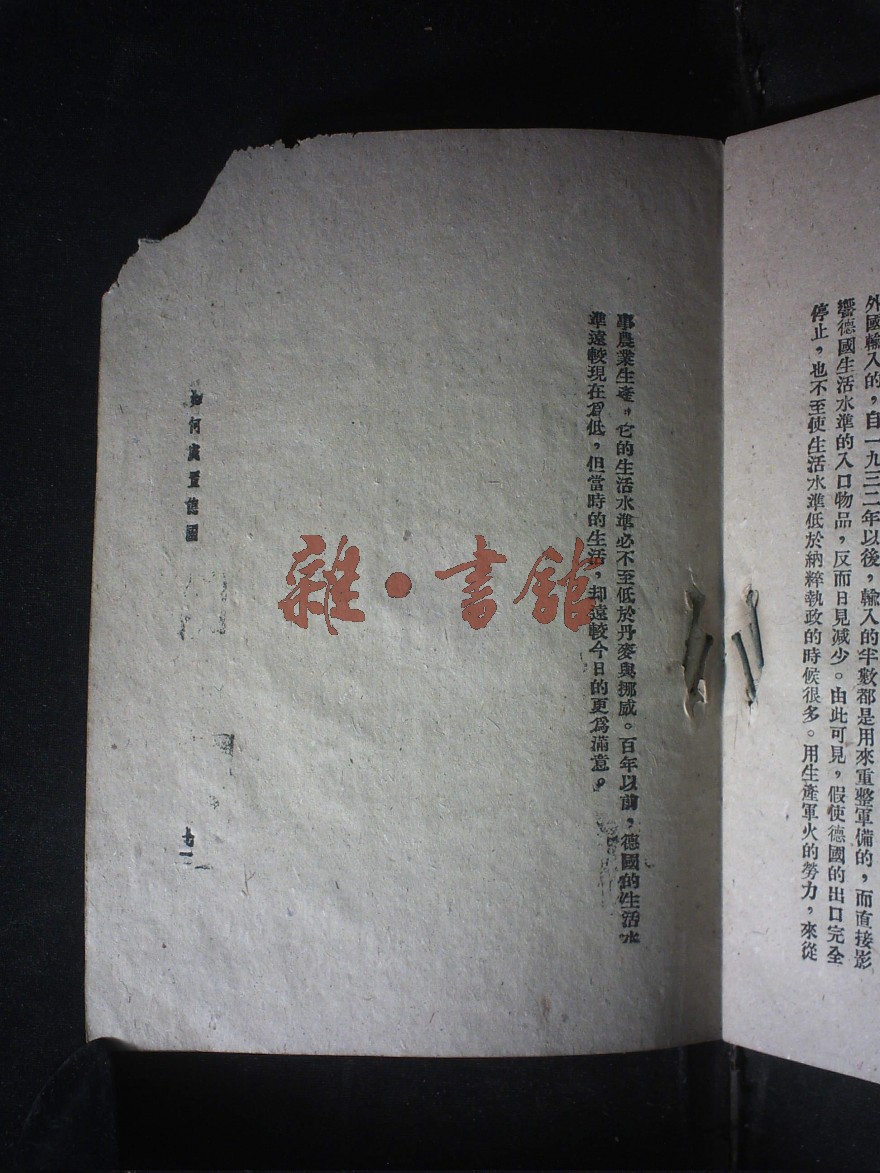 外國輸入的，自一九三二年以後，輸入的半數都是用來重整軍備的，而直接影
響德國生活水準的入口物品，反而日見減少。由此可見，假使德國的出口完全
停止，也不至使生活水準低於納粹執政的時候很多。用生產軍火的勞力，來從
事農業生產，它的生活水準必不至低於丹麥與挪威。百年以前，德國的生活水
準遠較現在爲低，但當時的生活，却遠較今日的更爲滿意。
如何處置德國
七一
雜·書館